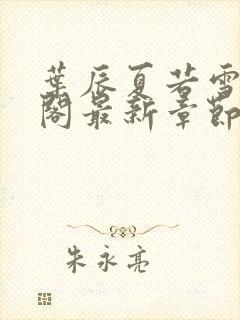 葉辰夏若雪
閣最新章節
朱永亮